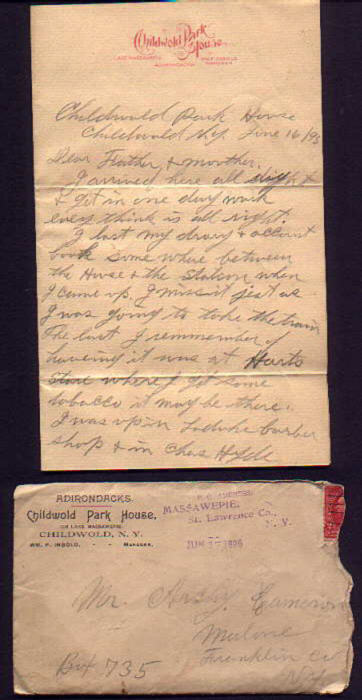 Childwold Park
House.
LAKE MASSAWEPIE
ADIRONDACKS
Childwold Park House
Childwold N.Y. June 16/96
Dear Feather & moother.
I arrived here all right
& got in one day work
every think is all right.
I last my diary & account
book some where between
the House & the Station when
I came up. I miss it jest as
I was going to take the train
The last I remmember of
haveing it was at Harts
Store where I got some
tobacco it may be there.
I was up in barber
shop & in Chas Hyde
ADIRONDACKS
Childwold Park House,
ON LAKE MASSAWEPIE.
CHILDWOLD, N. Y.
WM. F. INGOLD, - - MANAGER.
P. O. ADDRESS
MASSAWEPIE,
St. Lawrence Co.,
N. Y.
JUN 17 1896
Mr. Cameron
Malone
Franklin Co
N.Y.
Box 735